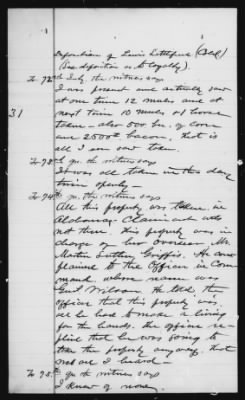 Deposition of Luis Littlefield (Col'd)
(See deposition as to loyalty).
To 72nd Intg. the witness says
I was present and actually saw
at one time 12 mules and at
next time 10 mules & 1 horse
31
taken - also 500 bu. of corn
and 2500 # bacon. that is
all I am saw taken.
To 73rd qu. the witness says
It was all taken in the day
time openly -
To 74th qu. the witness says
All this property was taken in
Alabama, Claimant was
not there. This property was in
charge of her overseer Mr.
Martin Luther Griffis. He com
plained to the Officer in com
mand, whose name was
Genl Wilson. He told the
officer that this property was
all he had to make a living
for the hands. the officer re
plied that he was going to
take the property anyway. that
was all I heard -
To 75th qu. the witness says
I know of none.